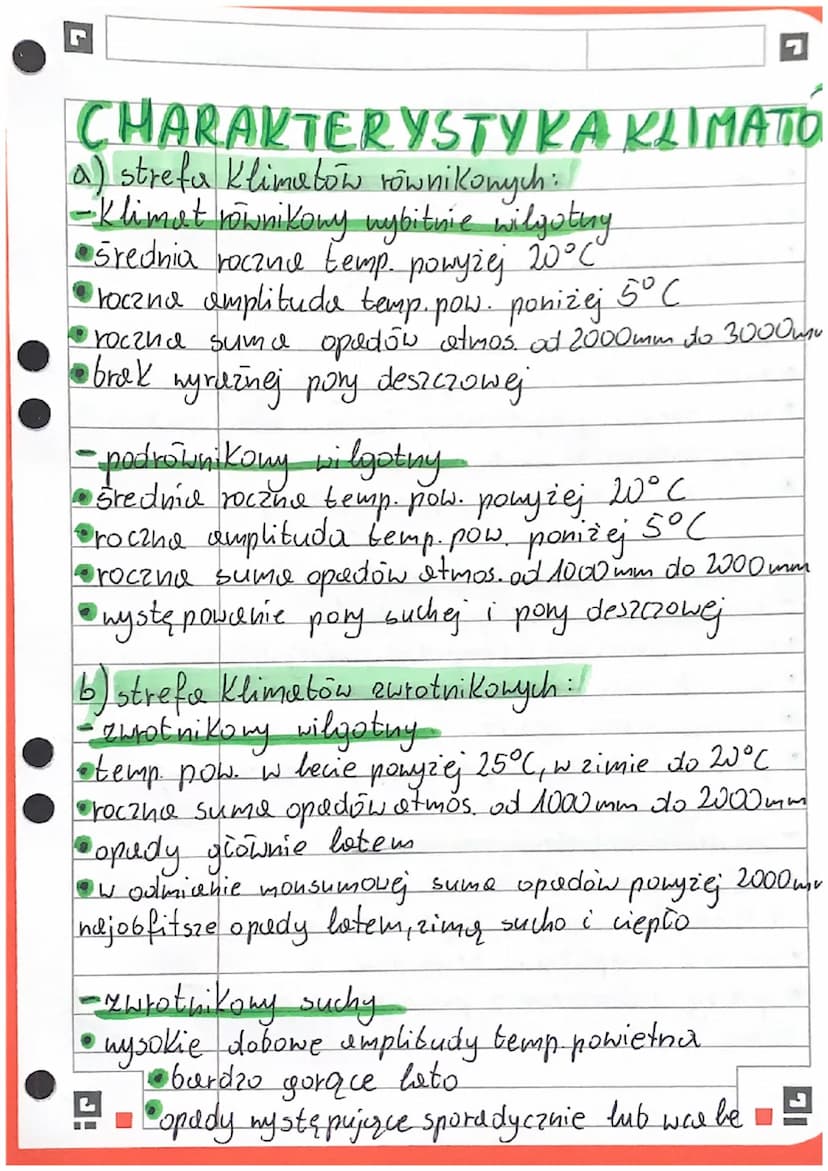 CHARAKTERYSTYKA KLIMATÓ
a) strefa klimatów równikowych:
- klimat równikowy wybitnie wilgotny
• średnia roczna temp. powyżej 20°C
• roczna amplituda temp. pow. poniżej 5°C
• roczna suma opadów atmos. od 2000mm do 3000mm
• brak wyraźnej pory deszczowej
- podrównikowy wilgotny
• średnia roczna temp. pow. powyżej 20°C
• roczna amplituda temp. pow. poniżej 5°C
• roczna suma opadów atmos. od 1000mm do 2000mm
• występowanie pory suchej i pory deszczowej
b) strefa klimatów zwrotnikowych:
- zwrotnikowy wilgotny
• temp. pow. w lecie powyżej 25°C, w zimie do 20°C
• roczna suma opadów atmos. od 1000mm do 2000mm
• opady głównie latem
• w odmianie monsumowej suma opadów powyżej 2000mm
najobfitsze opady latem, zimą sucho i ciepło
- zwrotnikowy suchy
• wysokie dobowe amplitudy temp. powietrza
• bardzo gorące lato
• opady występujące sporadycznie lub wcale